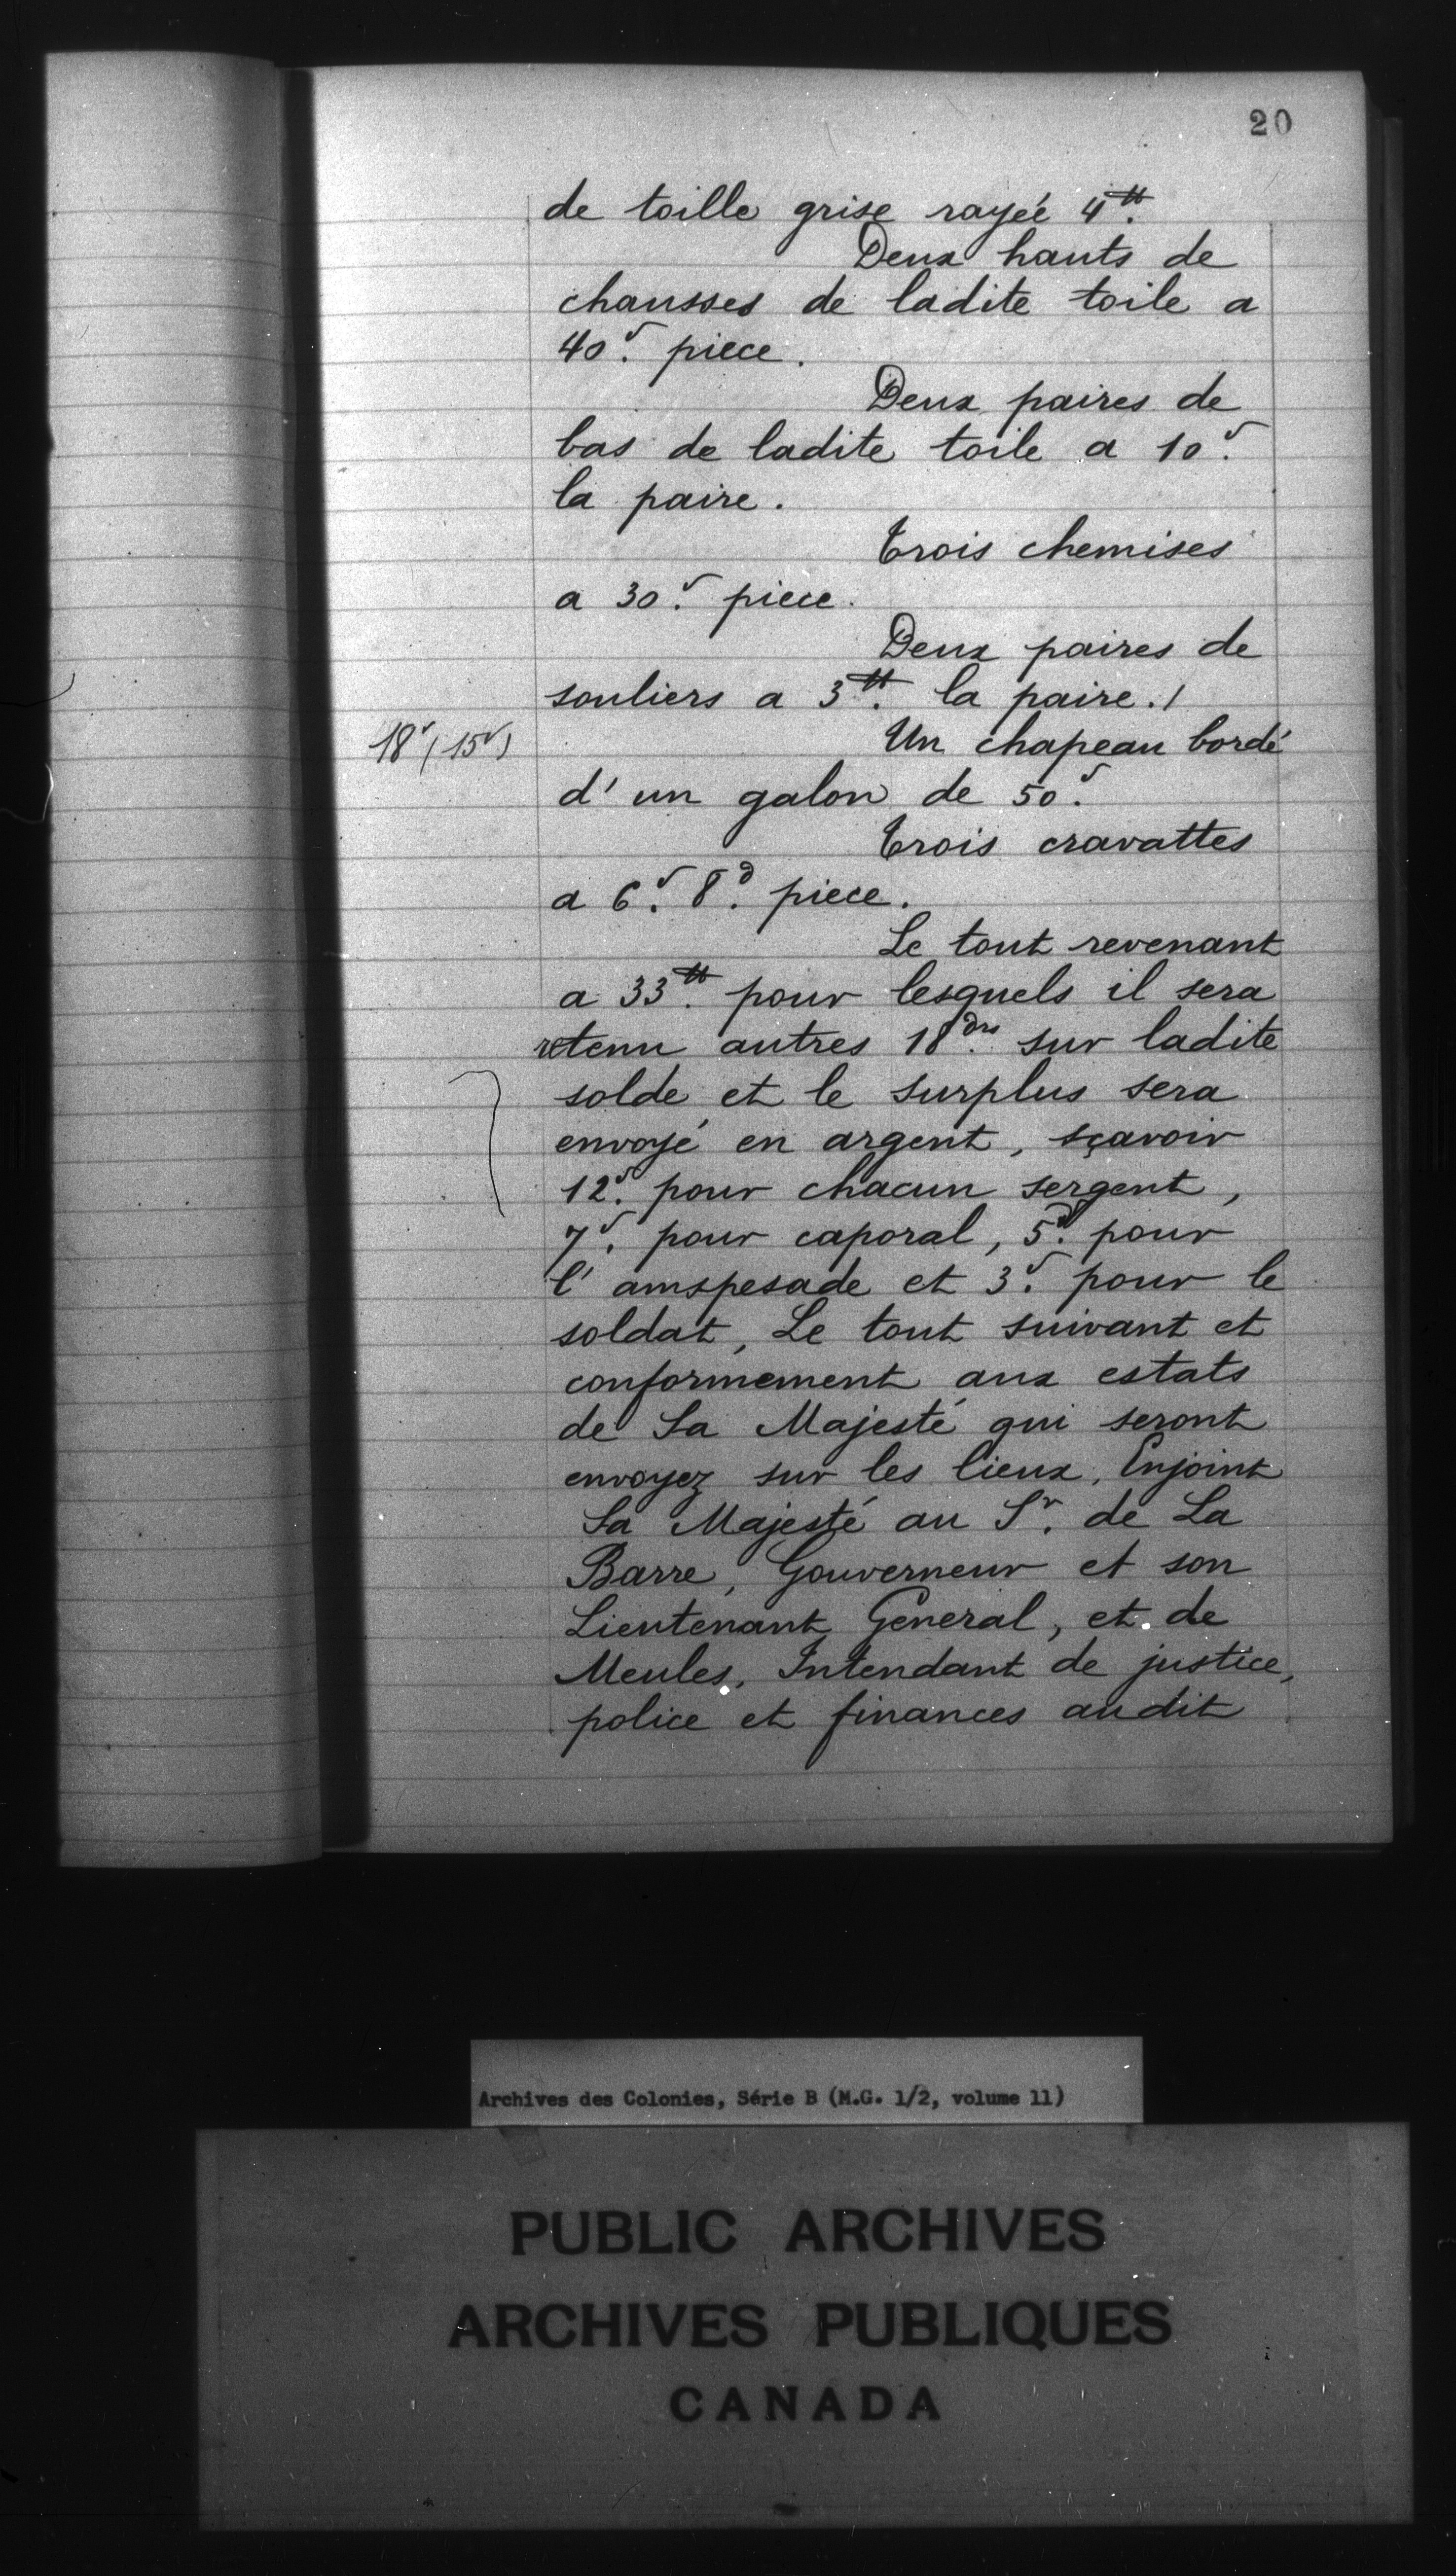 20
de toille grise rayée 4tt.
Deux hauts de
chausses de ladite toile a
40s. piece.
Deux paires de
bas de ladite toile a 10s.
la paire.
Trois chemises
a 30s. piece.
Deux paires de
souliers a 3tt. la paire./
18v (15v)
Un chapeau bordé
d'un galon de 50s.
Trois cravattes
a 6s. 8d. piece.
Le tout revenant
a 33tt. pour lesquels il sera
retenu autres 18drs. sur ladite
solde et le surplus sera
envoyé en argent, sçavoir
12s. pour chacun sergent,
7s. pour caporal, 5s. pour
l'amspesade et 3s. pour le
soldat, Le tout suivant et
conformement aux estats
de Sa Majesté qui seront
envoyez sur les lieux, Enjoint
Sa Majesté au Sr. de La
Barre, Gouverneur et son
Lieutenant General, et de
Meules, Intendant de justice,
police et finances audit
Archives des Colonies, Série B (M.G. 1/2, volume 11)
PUBLIC ARCHIVES
ARCHIVES PUBLIQUES
CANADA